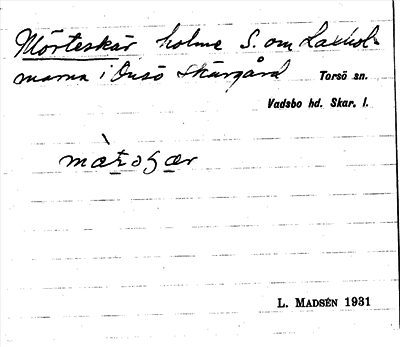 Mörteskär holme S. om Laxhol-
marna i Onsö skärgård Torsö sn.
Vadsbo hd. Skar. l.
màtosær
L. MADSÉN 1931